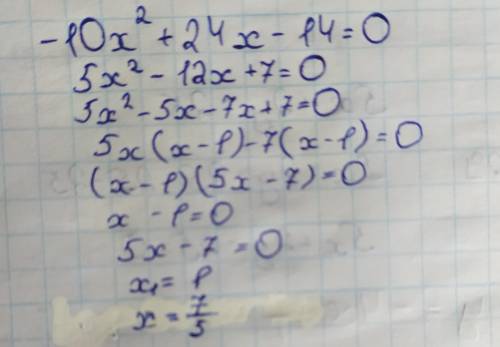 -10x² + 24x - 14 = 0
5x² - 12x + 7 = 0
5x² - 5x - 7x + 7 = 0
5x(x - 1) - 7(x - 1) = 0
(x - 1)(5x - 7) = 0
x - 1 = 0
5x - 7 = 0
x₁ = 1
x = 7/5